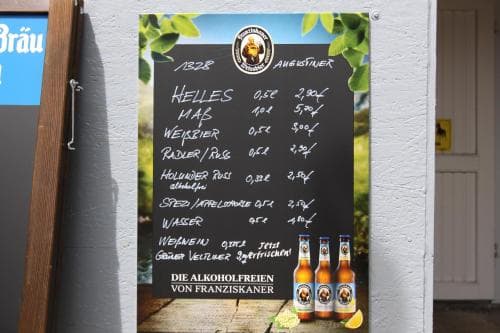 Bräu
Franziskaner
Weissbier
1328 AUGUSTINER
HELLES 0,5l 2,90€
MAß 1,0l 5,70€
WEIßBIER 0,5l 3,00€
RADLER/RUSS 0,5l 2,90€
HOLUNDER RUSS 0,33l 2,50€
alkoholfrei
SPEZI/APFELSCHORLE 0,5l 2,50€
WASSER 0,5l 1,80€
WEIßWEIN Jetzt
GRÜNER VELTLINER Superfrischen!
DIE ALKOHOLFREIEN
VON FRANZISKANER